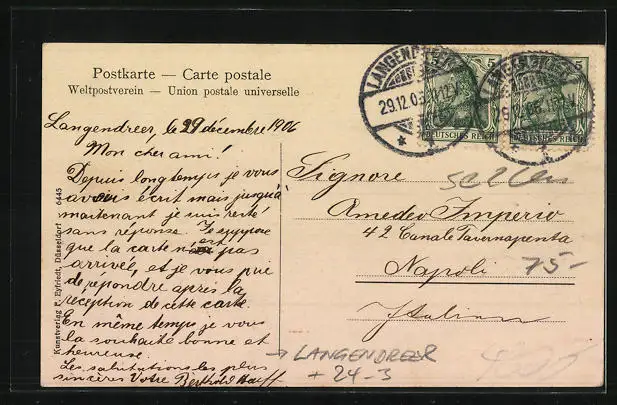 Postkarte — Carte postale
Weltpostverein — Union postale universelle
Langendreer, le 29 décembre 1906
Mon cher ami!
Depuis longtemps je vous
avais écrit mais jusqu'à
maintenant je suis resté
sans réponse. Je suppose
que la carte n'est pas
arrivée, et je vous prie
de répondre après la
réception de cette carte.
En même temps je vous
la souhaite bonne et
heureuse.
Les salutations les plus
sincères Votre Berthold
Kunstverlag F. Eyfriedt, Düsseldorf 6445
LANGENDREER
29.12.06
5
5
DEUTSCHES REICH
DEUTSCHES REICH
Signore
Amedeo Imperio
42 Canale Tavernapenta
Napoli
Italien
selten
75-
→ LANGENDREER
+ 24-3